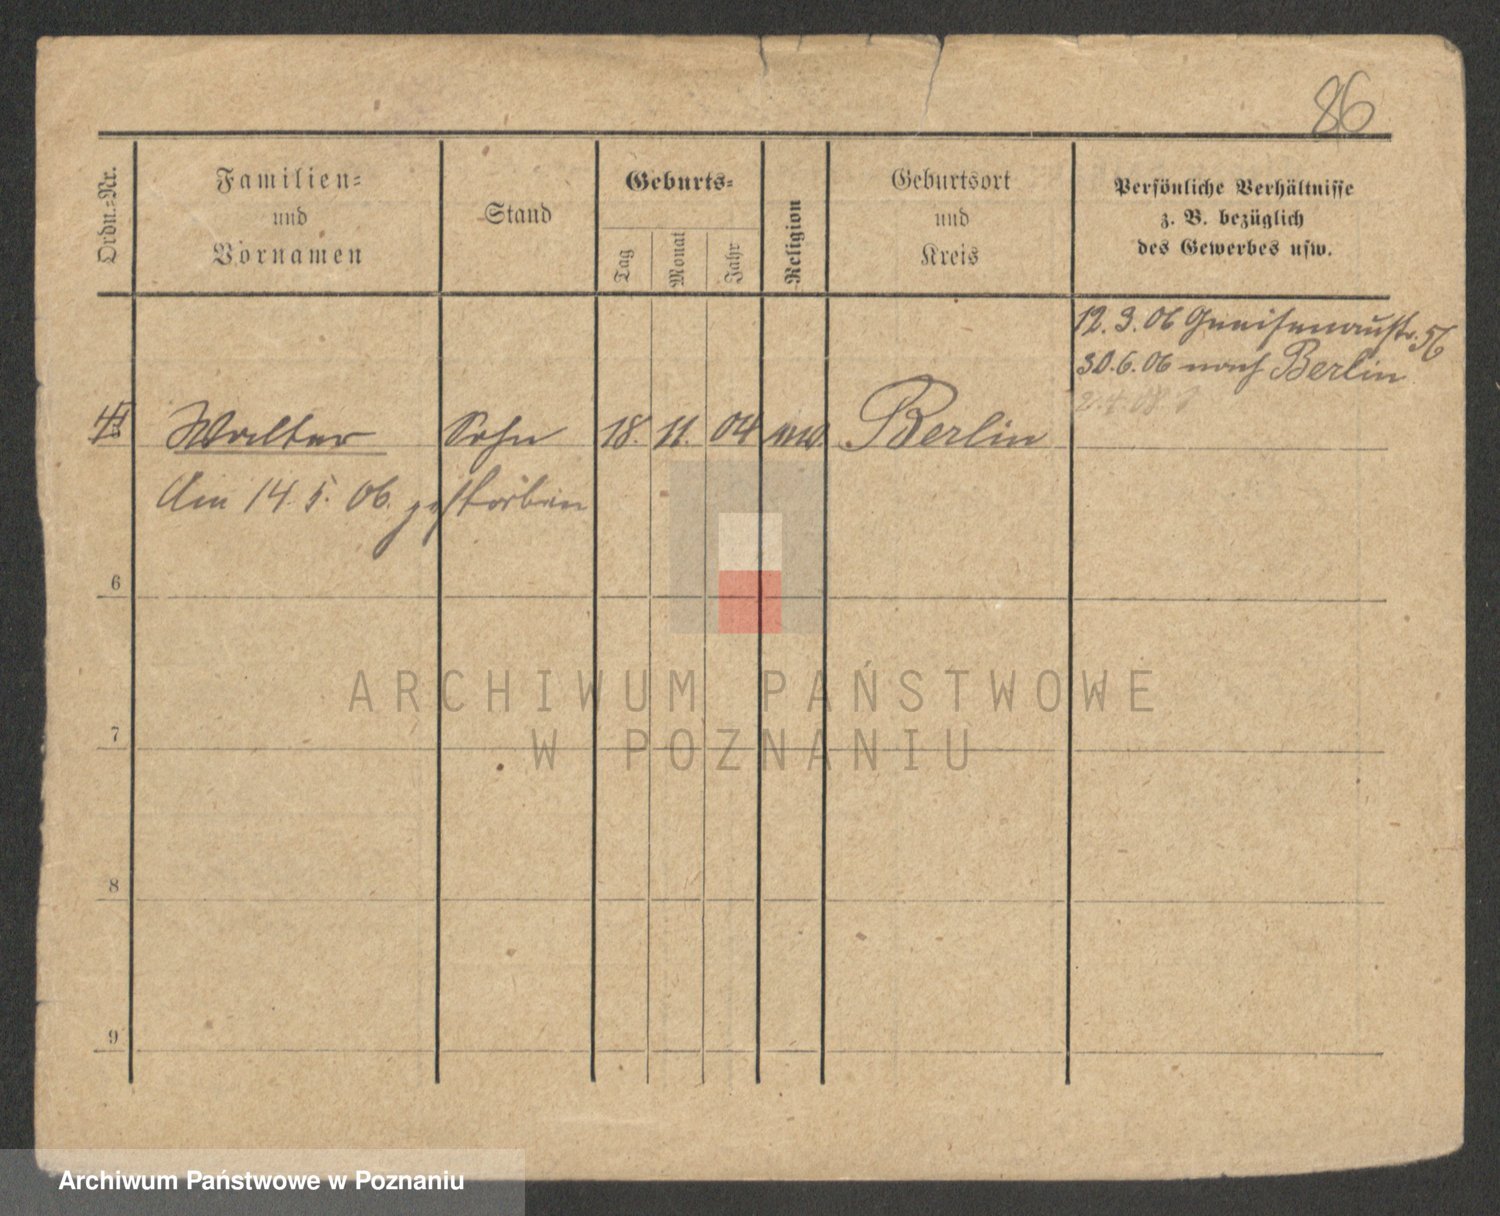 86
Ordn.-Nr.
Familien-
und
Vornamen
Stand
Geburts-
Tag
Monat
Jahr
Religion
Geburtsort
und
Kreis
Persönliche Verhältnisse
z. B. bezüglich
des Gewerbes usw.
12.3.06 Gneisenaustr. 56
30.6.06 nach Berlin
Walter Sohn 18. 11. 04 Berlin
Am 14. 5. 06. gestorben
6
7
8
9
ARCHIWUM PAŃSTWOWE
W POZNANIU
Archiwum Państwowe w Poznaniu